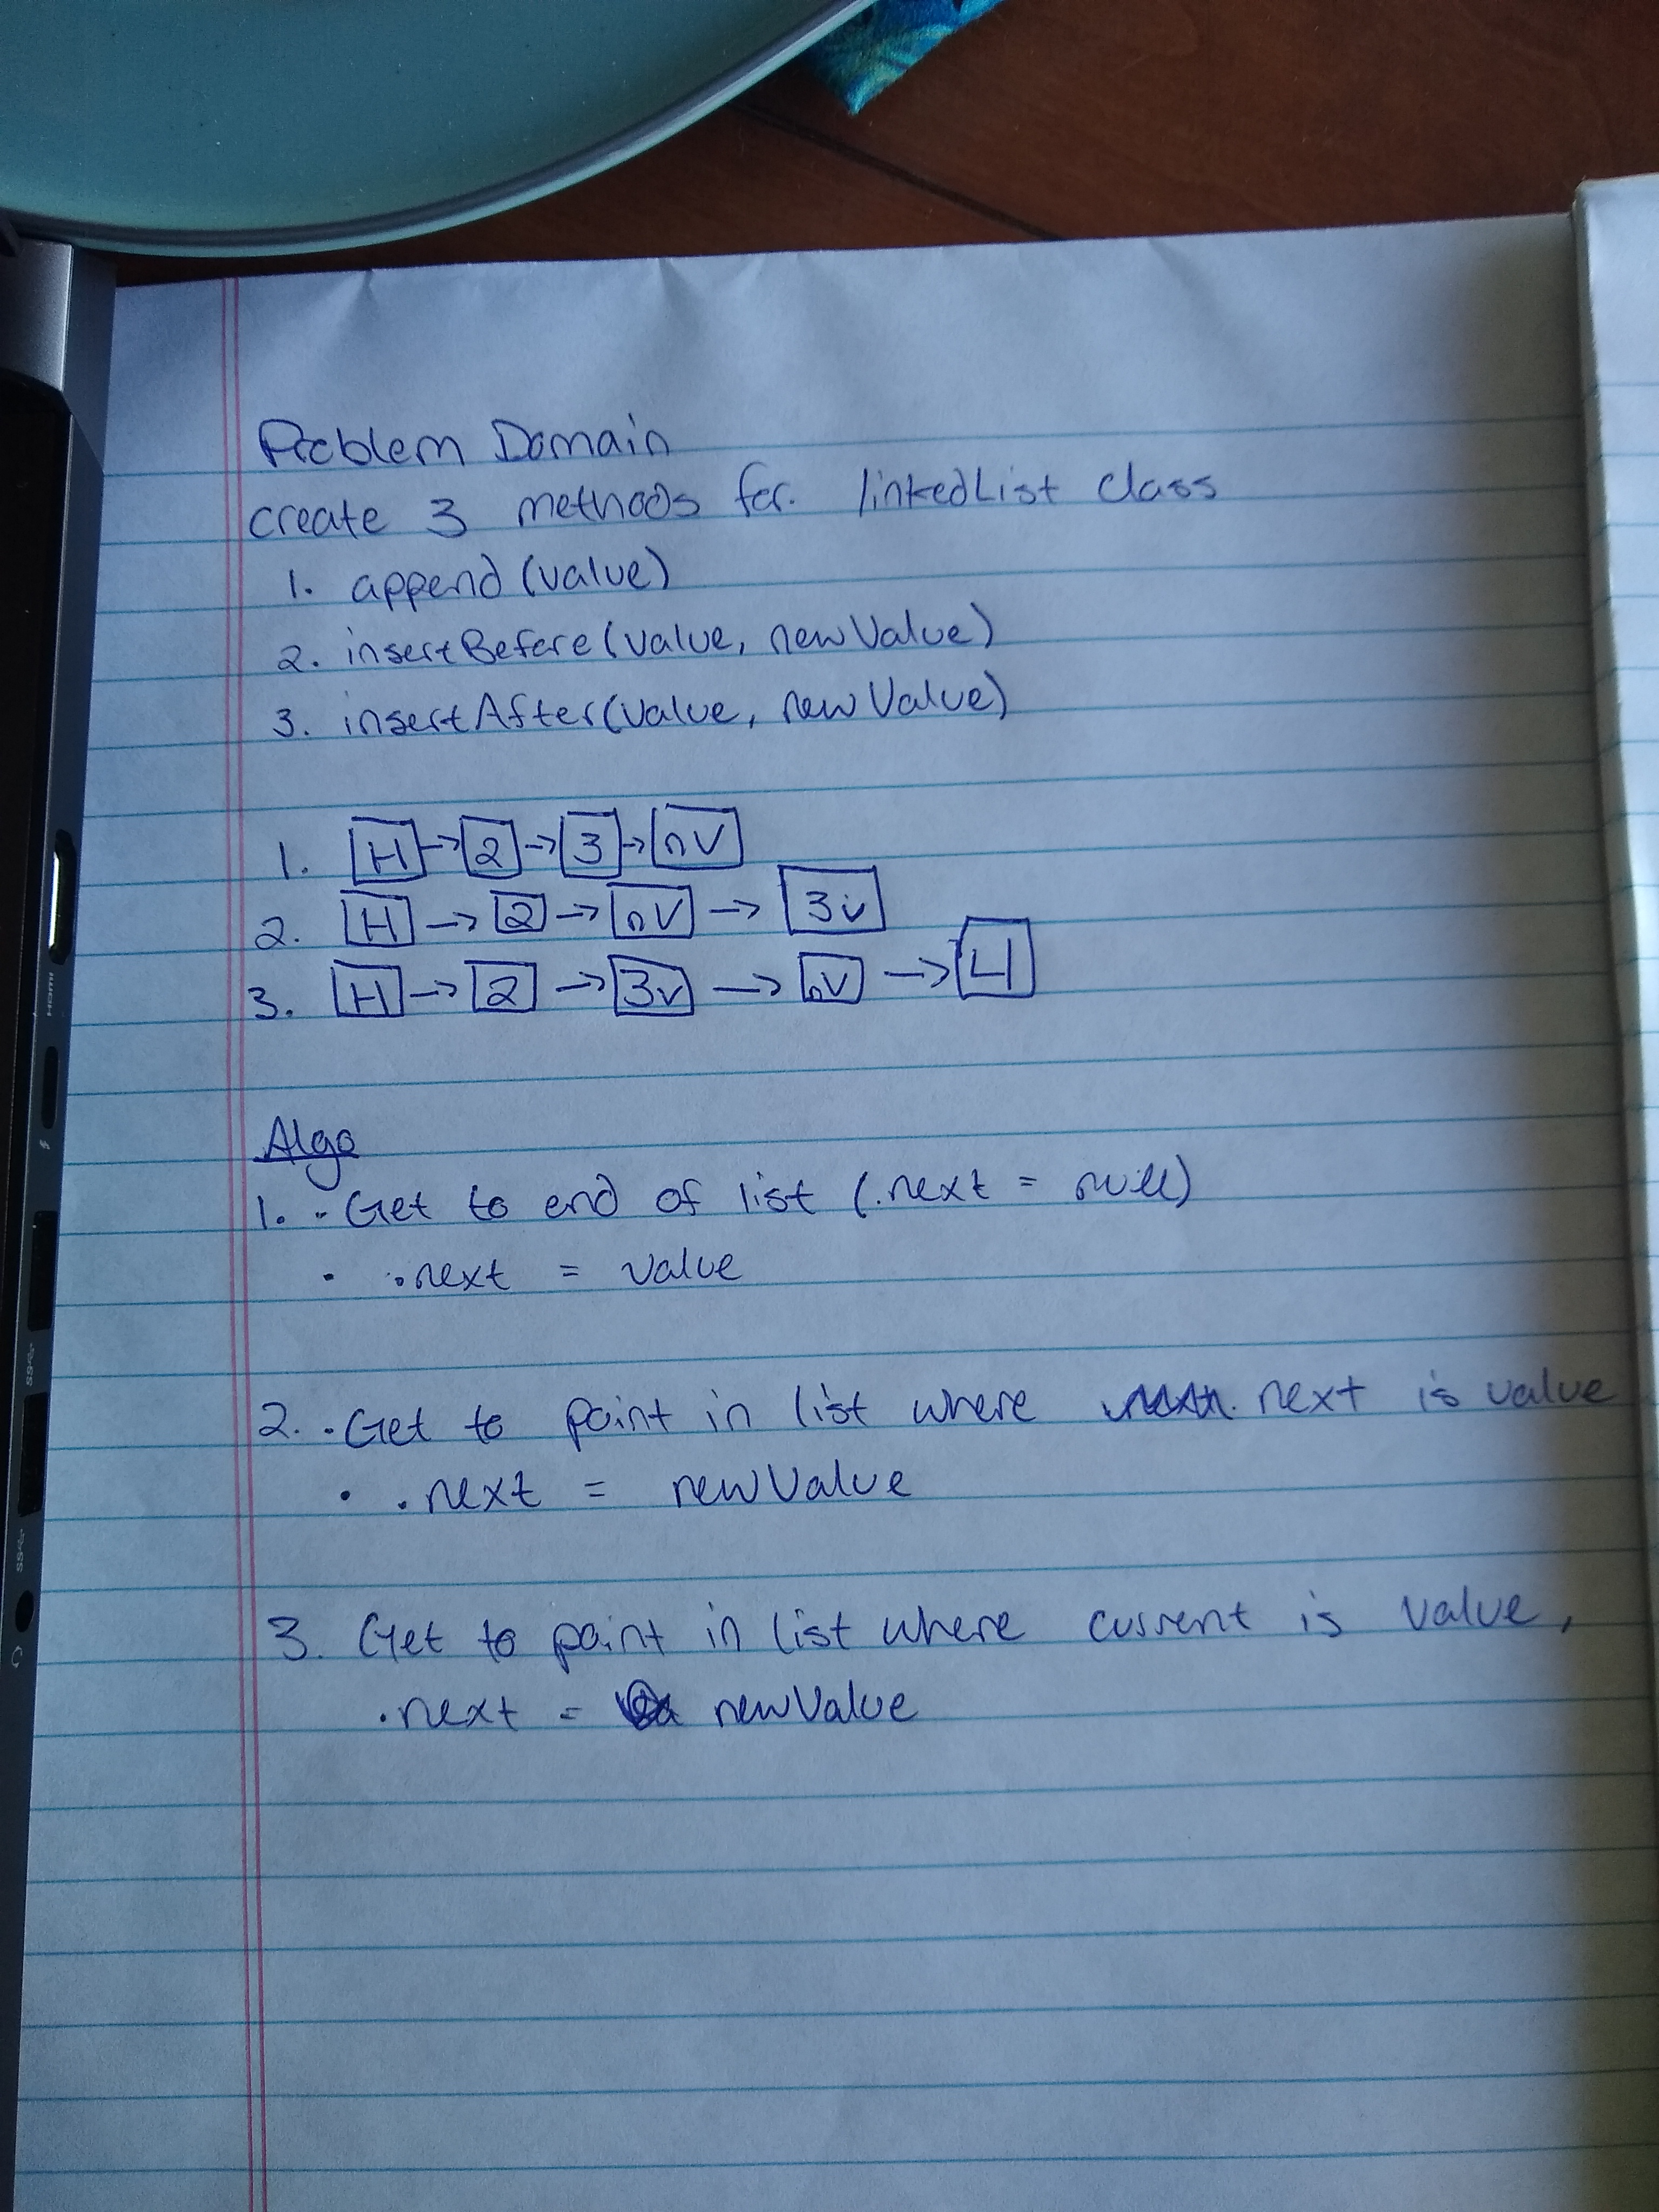 Problem Domain
create 3 methods for linkedList class
1. append(value)
2. insertBefore(value, newValue)
3. insertAfter(value, newValue)
1. H → 2 → 3 → nV
2. H → 2 → nV → 3v
3. H → 2 → 3v → nV → 4
Algo
1. • Get to end of list (.next = null)
• .next = value
2. • Get to point in list where .next is value
• .next = newValue
3. Get to point in list where current is value,
.next = newValue
HDMI
SS
SS